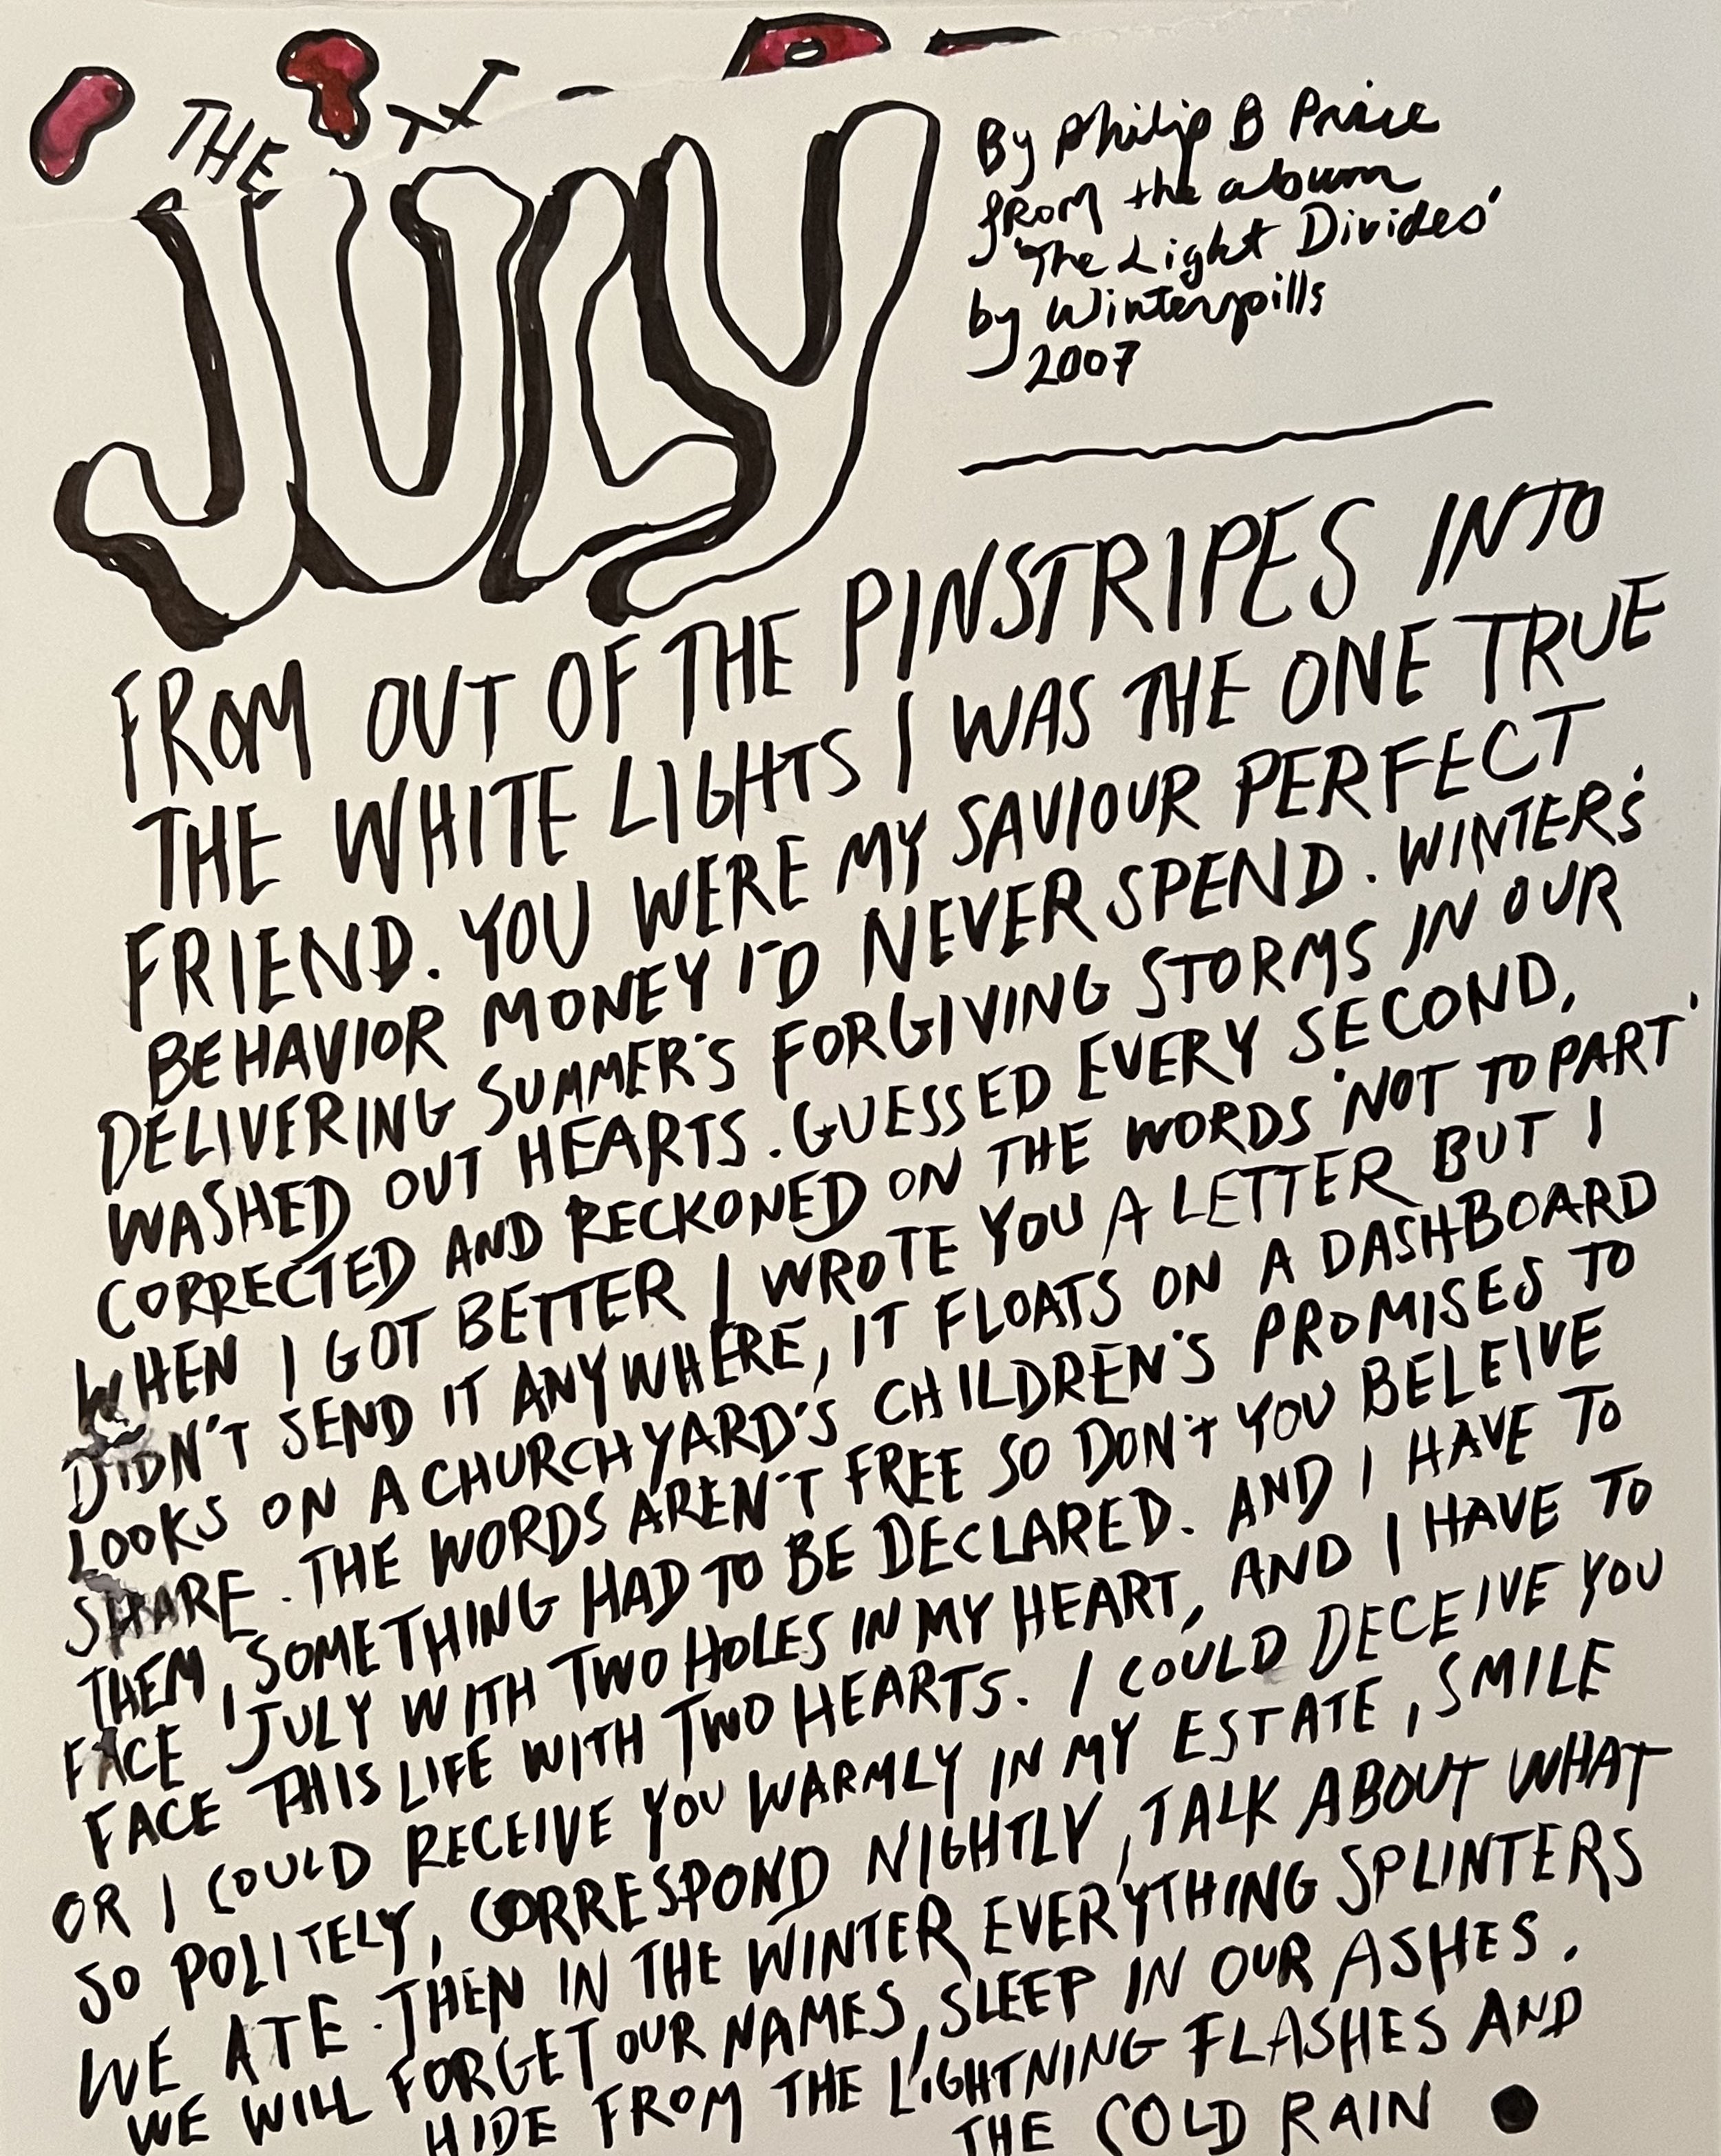 THE
JULY
By Philip B Price
from the album
'The Light Divides'
by Winterpills
2007
FROM OUT OF THE PINSTRIPES INTO
THE WHITE LIGHTS I WAS THE ONE TRUE
FRIEND. YOU WERE MY SAVIOUR PERFECT
BEHAVIOR MONEY I'D NEVER SPEND. WINTER'S
DELIVERING SUMMER'S FORGIVING STORMS IN OUR
WASHED OUT HEARTS. GUESSED EVERY SECOND,
CORRECTED AND RECKONED ON THE WORDS 'NOT TO PART'
WHEN I GOT BETTER I WROTE YOU A LETTER BUT I
DIDN'T SEND IT ANYWHERE, IT FLOATS ON A DASHBOARD
LOOKS ON A CHURCHYARD'S CHILDREN'S PROMISES TO
SHARE. THE WORDS AREN'T FREE SO DON'T YOU BELEIVE
THEM, SOMETHING HAD TO BE DECLARED. AND I HAVE TO
FACE JULY WITH TWO HOLES IN MY HEART, AND I HAVE TO
FACE THIS LIFE WITH TWO HEARTS. I COULD DECEIVE YOU
OR I COULD RECEIVE YOU WARMLY IN MY ESTATE, SMILE
SO POLITELY, CORRESPOND NIGHTLY, TALK ABOUT WHAT
WE ATE. THEN IN THE WINTER EVERYTHING SPLINTERS
WE WILL FORGET OUR NAMES, SLEEP IN OUR ASHES.
HIDE FROM THE LIGHTNING FLASHES AND
THE COLD RAIN